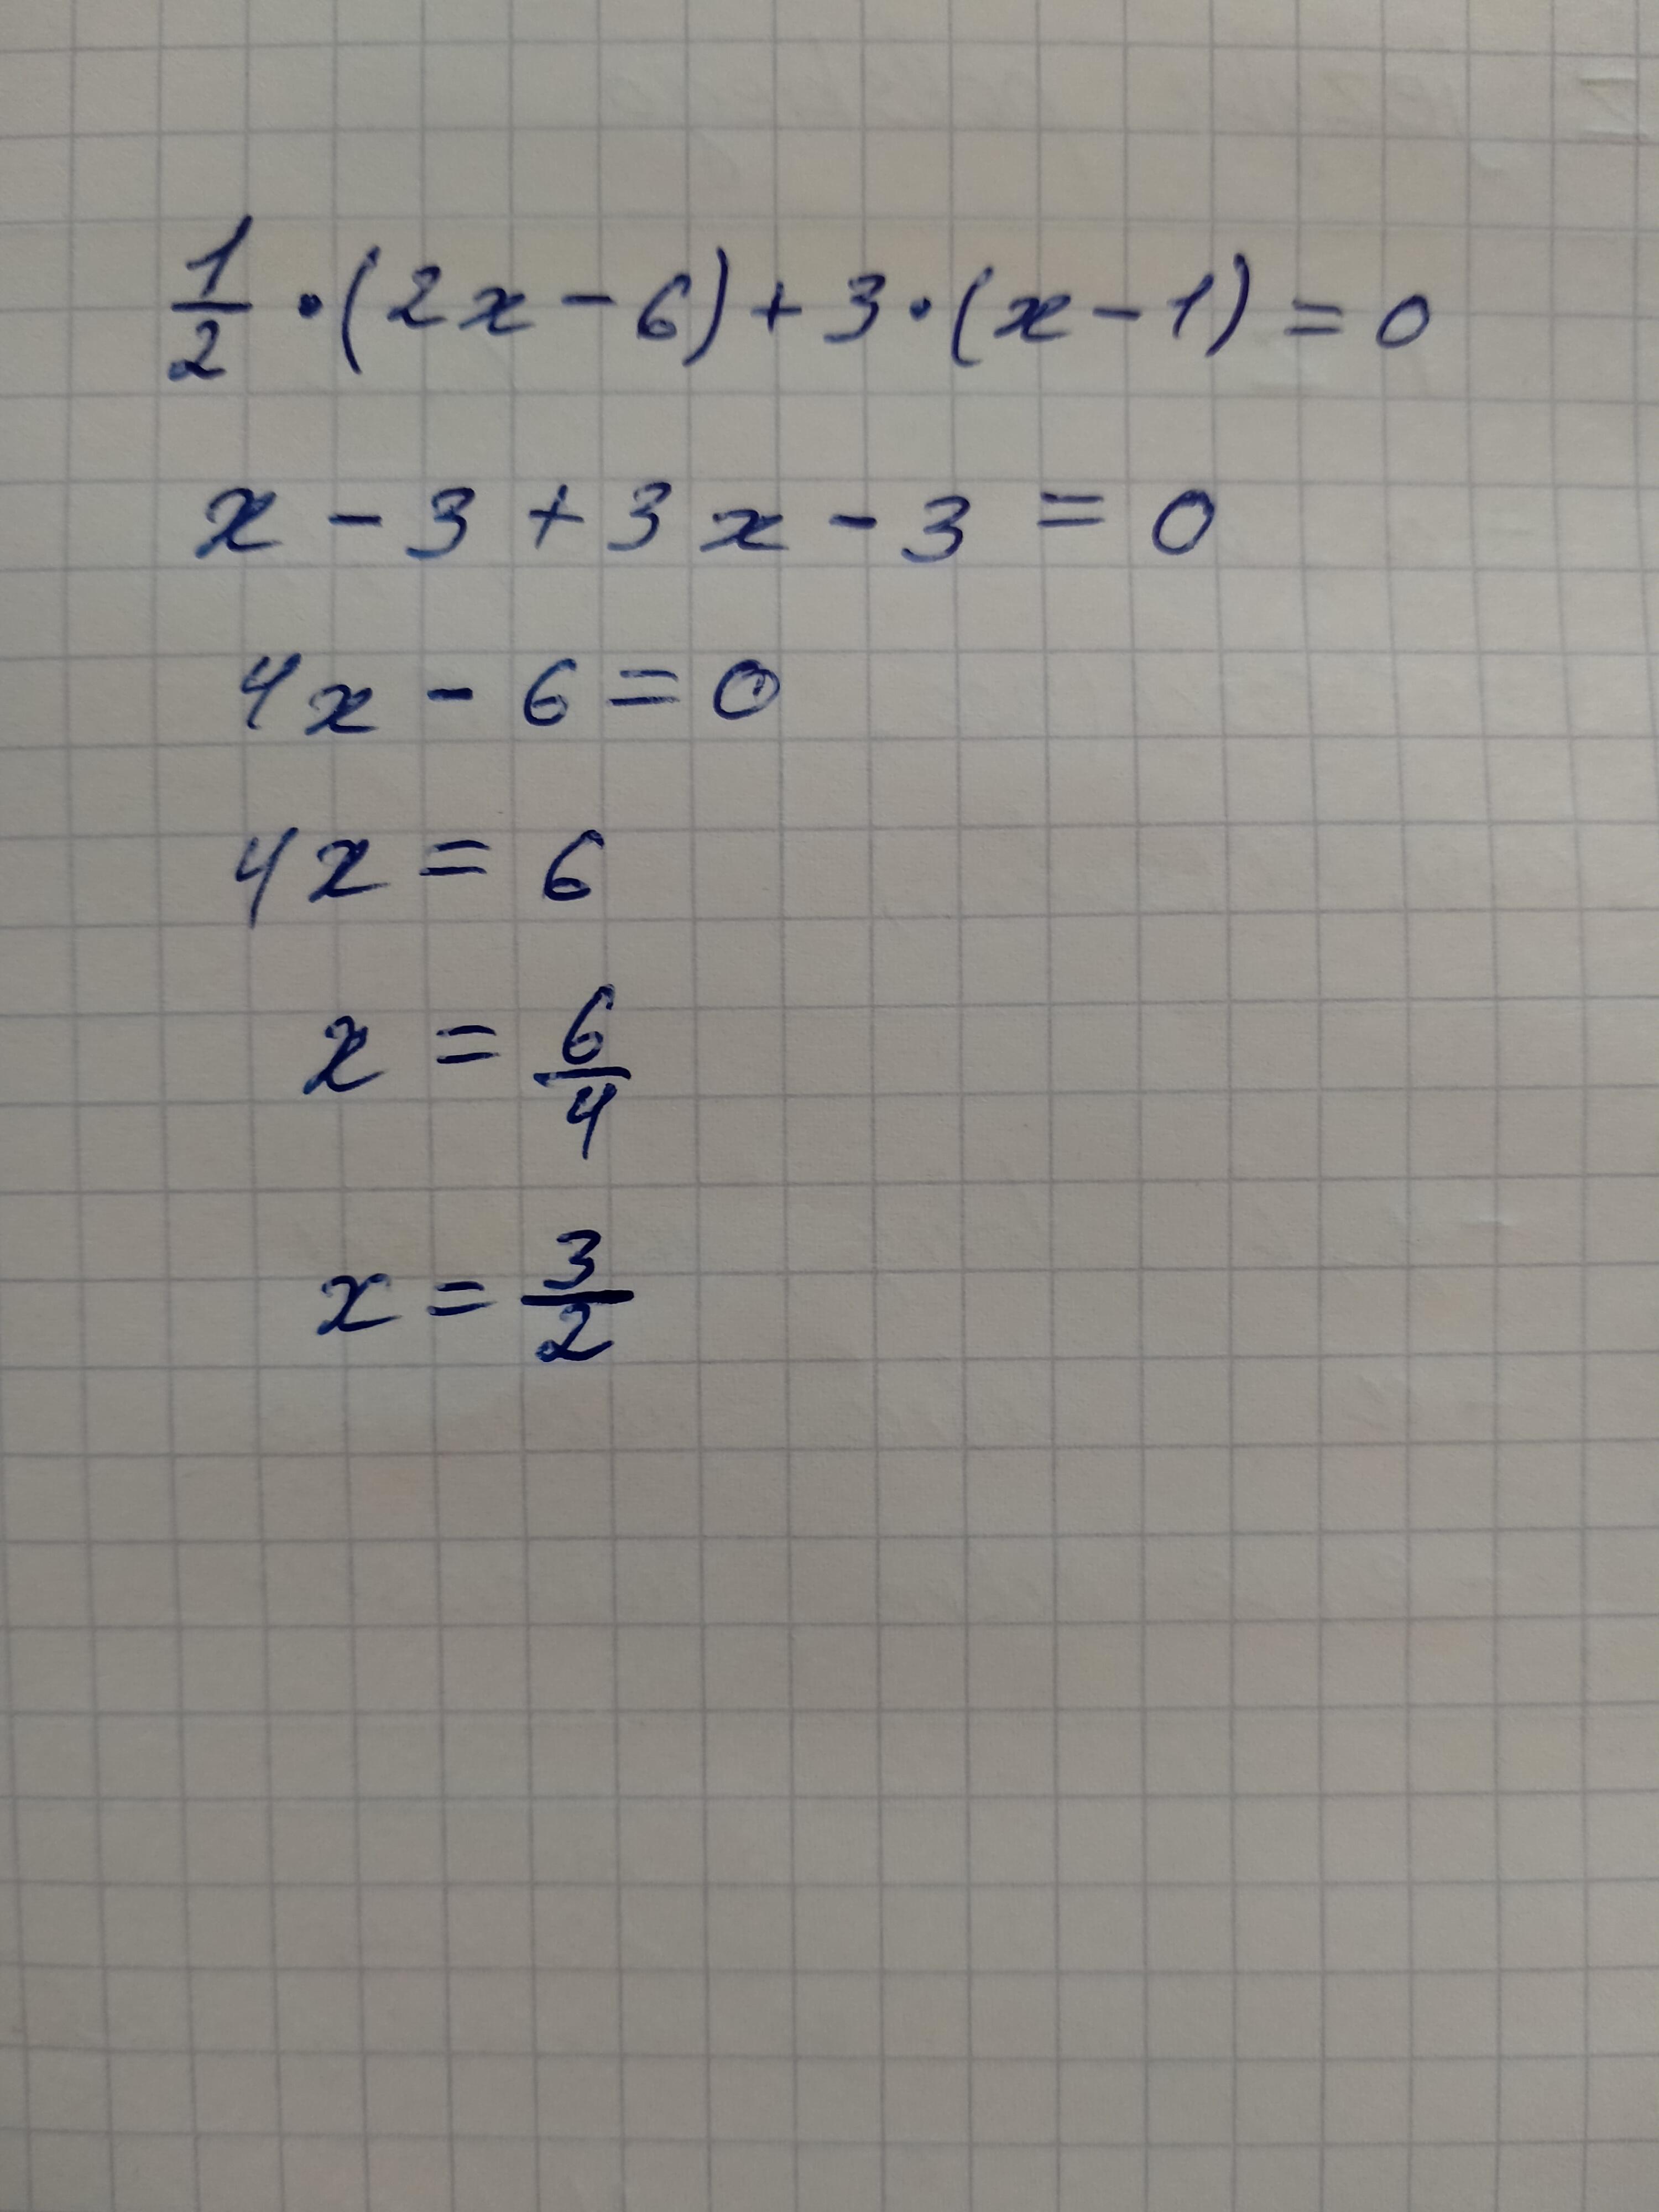 1/2 · (2x - 6) + 3 · (x - 1) = 0
x - 3 + 3x - 3 = 0
4x - 6 = 0
4x = 6
x = 6/4
x = 3/2